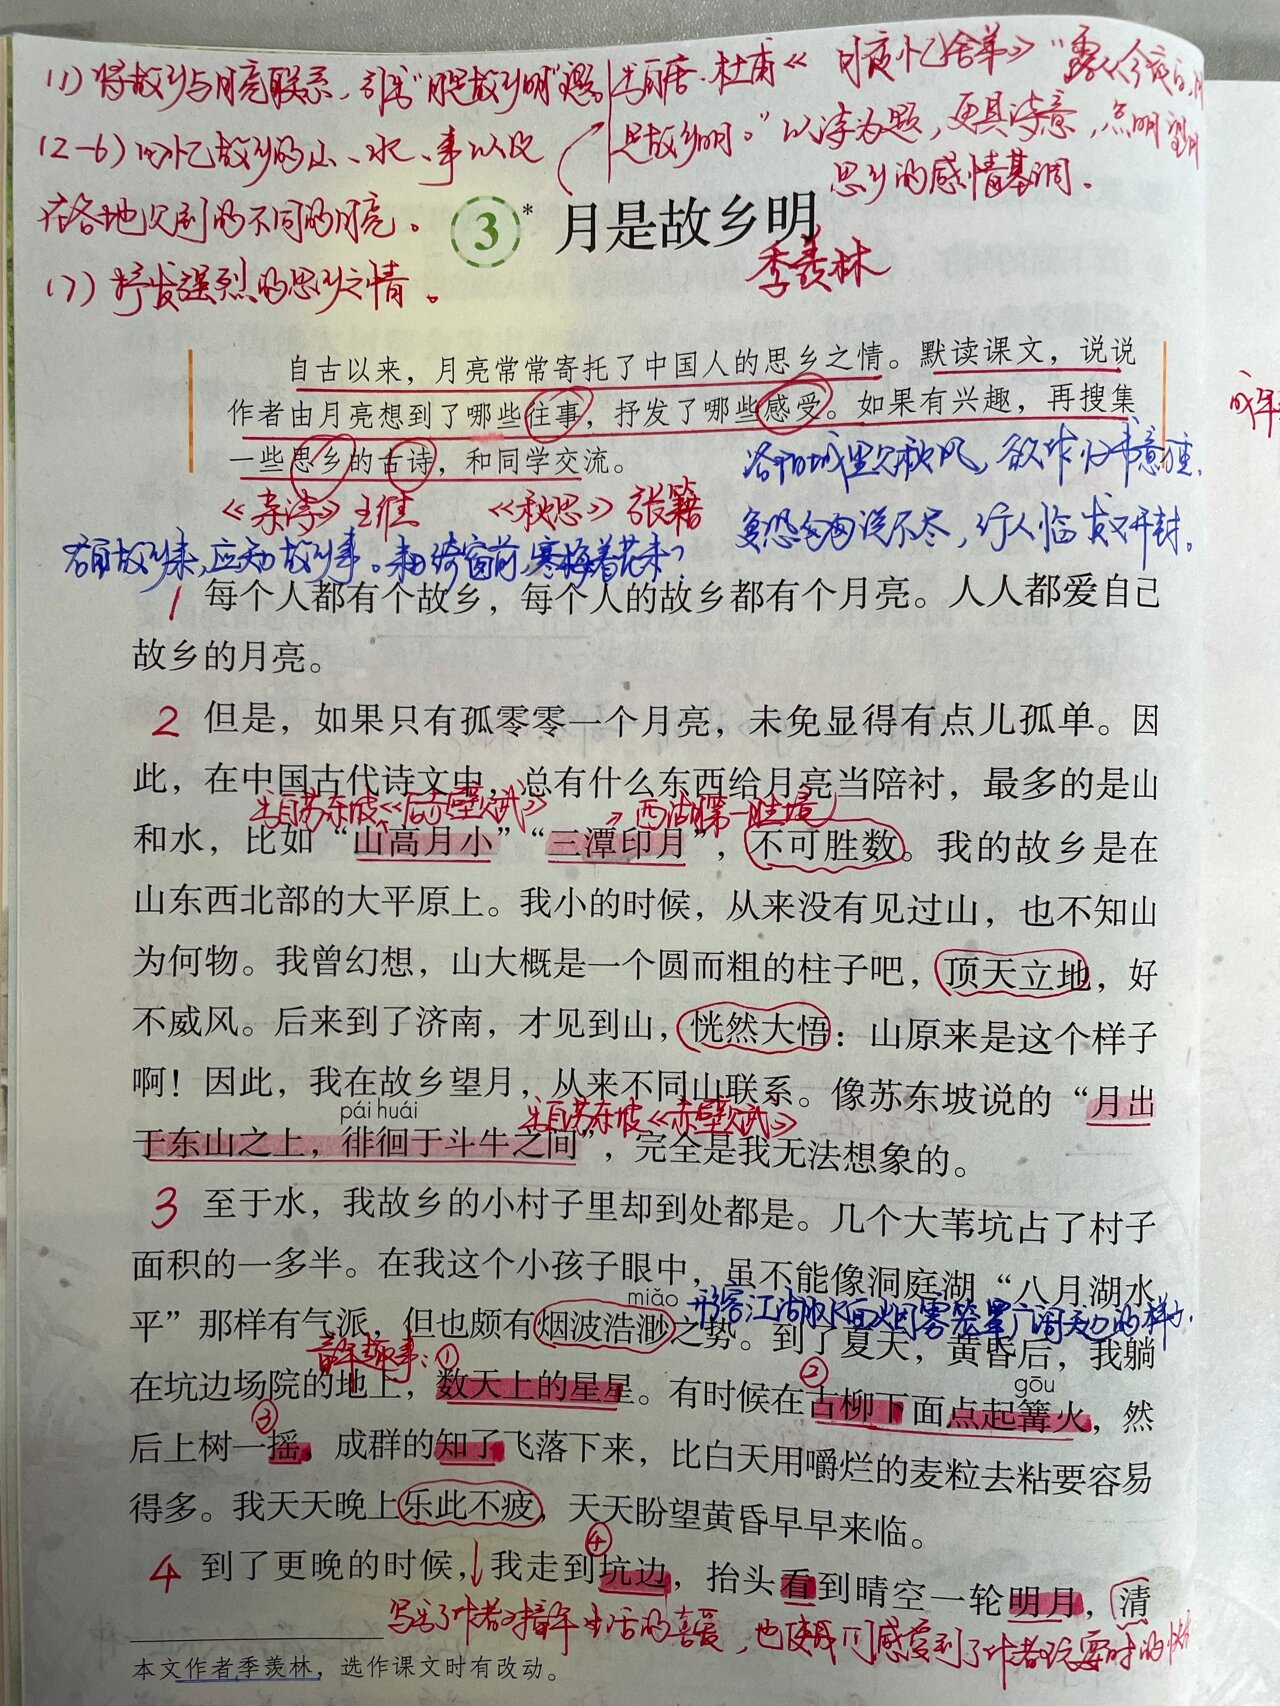 (1)将故乡与月亮联系，引出"月是故乡明"
(2-6)回忆故乡的山、水、事以及
在各地见到的不同的月亮。
(7)抒发强烈的思乡之情。
出自唐·杜甫《月夜忆舍弟》"露从今夜白,月
是故乡明。"以诗为题，更具诗意，点明望月
思乡的感情基调。
3* 月是故乡明
季羡林
自古以来，月亮常常寄托了中国人的思乡之情。默读课文，说说
作者由月亮想到了哪些往事，抒发了哪些感受。如果有兴趣，再搜集
一些思乡的古诗，和同学交流。
洛阳城里见秋风，欲作家书意万重.
《杂诗》王维 《秋思》张籍
复恐匆匆说不尽，行人临发又开封。
君自故乡来,应知故乡事。来日绮窗前,寒梅着花未?
1 每个人都有个故乡，每个人的故乡都有个月亮。人人都爱自己
故乡的月亮。
2 但是，如果只有孤零零一个月亮，未免显得有点儿孤单。因
此，在中国古代诗文中，总有什么东西给月亮当陪衬，最多的是山
出自苏东坡《后赤壁赋》 西湖第一胜境
和水，比如“山高月小”“三潭印月”，不可胜数。我的故乡是在
山东西北部的大平原上。我小的时候，从来没有见过山，也不知山
为何物。我曾幻想，山大概是一个圆而粗的柱子吧，顶天立地，好
不威风。后来到了济南，才见到山，恍然大悟：山原来是这个样子
啊！因此，我在故乡望月，从来不同山联系。像苏东坡说的“月出
pái huái
出自苏东坡《赤壁赋》
于东山之上，徘徊于斗牛之间”，完全是我无法想象的。
3 至于水，我故乡的小村子里却到处都是。几个大苇坑占了村子
面积的一多半。在我这个小孩子眼中，虽不能像洞庭湖“八月湖水
miǎo
形容江湖水面烟雾笼罩广阔无边的样子.
平”那样有气派，但也颇有烟波浩渺之势。到了夏天，黄昏后，我躺
童年趣事:①
②
gōu
在坑边场院的地上，数天上的星星。有时候在古柳下面点起篝火，然
③
后上树一摇，成群的知了飞落下来，比白天用嚼烂的麦粒去粘要容易
得多。我天天晚上乐此不疲，天天盼望黄昏早早来临。
④
4 到了更晚的时候，我走到坑边，抬头看到晴空一轮明月，清
写出了作者对童年生活的喜爱，也使我们感受到了作者玩耍时的快
本文作者季羡林，选作课文时有改动。